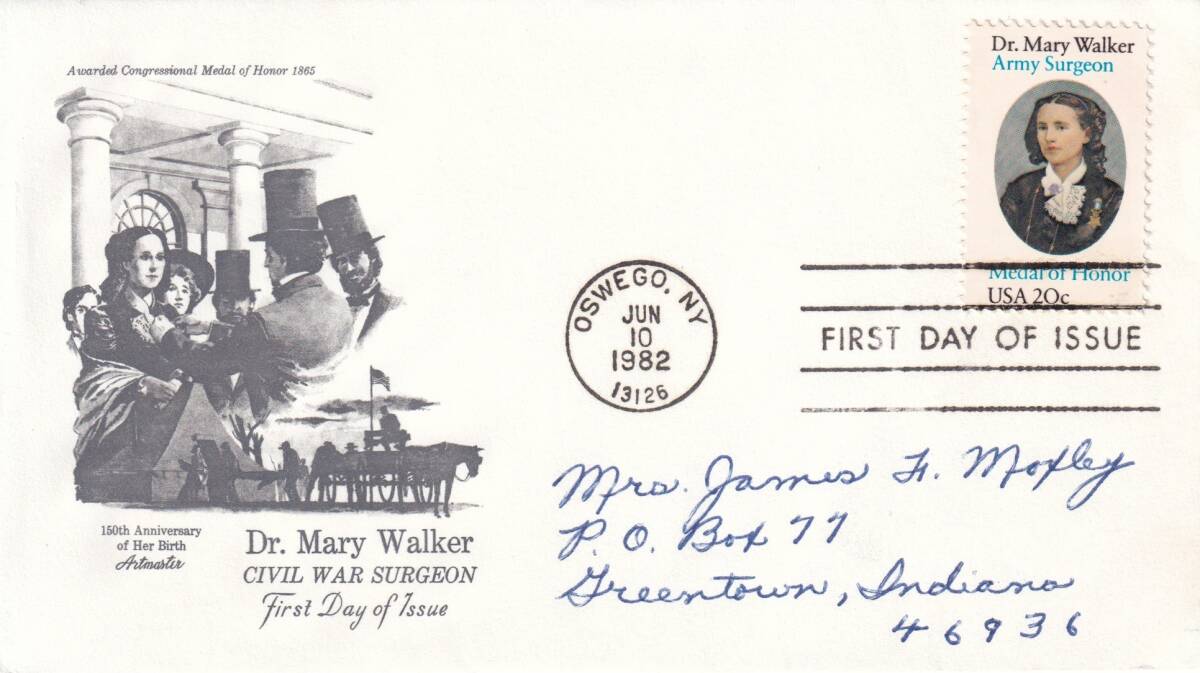 Awarded Congressional Medal of Honor 1865
150th Anniversary
of Her Birth
Artmaster
Dr. Mary Walker
CIVIL WAR SURGEON
First Day of Issue
Dr. Mary Walker
Army Surgeon
Medal of Honor
USA 20c
OSWEGO, NY
JUN
10
1982
13126
FIRST DAY OF ISSUE
Mrs. James F. Moxley
P. O. Box 77
Greentown, Indiana
46936